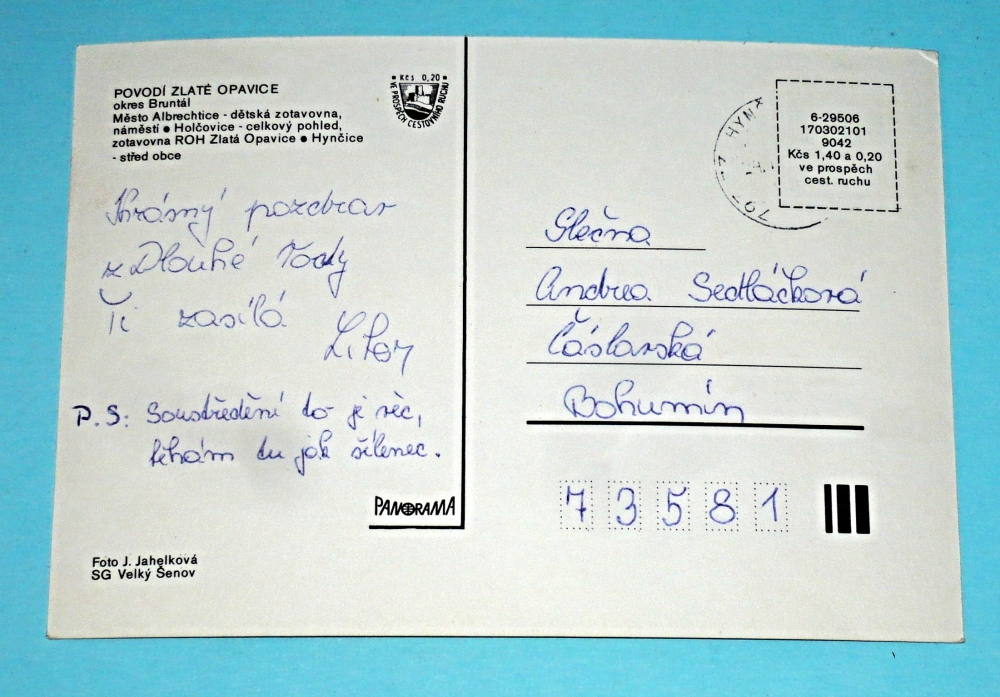 POVODÍ ZLATÉ OPAVICE
okres Bruntál
Město Albrechtice - dětská zotavovna,
náměstí ● Holčovice - celkový pohled,
zotavovna ROH Zlatá Opavice ● Hynčice
- střed obce
Kčs 0,20
VE PROSPĚCH CESTOVNÍHO RUCHU
Krásný pozdrav
z Dlouhé Vody
Ti zasílá
Libor
P.S: Soustředění to je věc,
běhám tu jak šílenec.
PANORAMA
Foto J. Jahelková
SG Velký Šenov
HYN
79
6-29506
170302101
9042
Kčs 1,40 a 0,20
ve prospěch
cest. ruchu
Slečna
Andrea Sedláčková
Čáslavská
Bohumín
73581